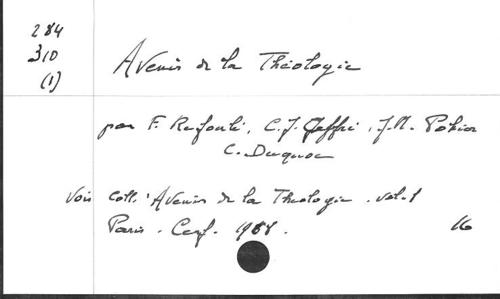 284
310
(1)
Avenir de la Théologie
par F. Refoulé, C.J. Geffré, J.M. Pohier
C. Duquoc
Voir Coll. 'Avenir de la Theologie. vol. 1
Paris. Cerf. 1968.